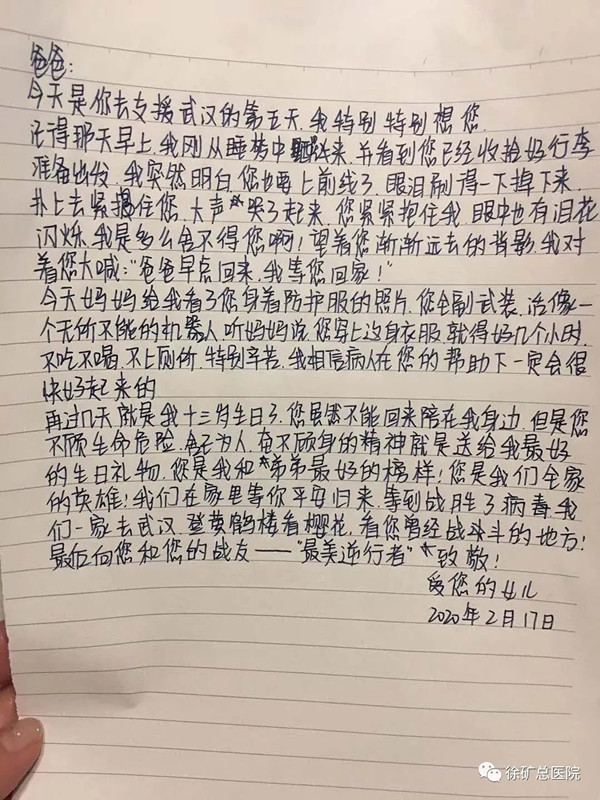 爸爸:
今天是你去支援武汉的第五天,我特别特别想您.
记得那天早上,我刚从睡梦中醒来,并看到您已经收拾好行李
准备出发,我突然明白,您也要上前线了,眼泪刷得一下掉下来,
扑上去紧握住您,大声哭了起来,您紧紧抱住我,眼中也有泪花
闪烁,我是多么舍不得您啊!望着您渐渐远去的背影,我对
着您大喊:"爸爸早点回来,我等您回家!"
今天妈妈给我看了您身着防护服的照片,您全副武装,活像一
个无所不能的机器人,听妈妈说,您穿上这身衣服,就得好几个小时,
不吃不喝,不上厕所,特别辛苦,我相信病人在您的帮助下一定会很
快好起来的
再过几天就是我十三岁生日了,您虽然不能回来陪在我身边,但是您
不顾生命危险,舍己为人,奋不顾身的精神就是送给我最好
的生日礼物,您是我和弟弟最好的榜样!您是我们全家
的英雄!我们在家里等你平安归来,等到战胜了病毒,我
们一家去武汉登黄鹤楼看樱花,看您曾经战斗的地方!
最后向您和您的战友——"最美逆行者"致敬!
爱您的女儿
2020年2月17日
徐矿总医院